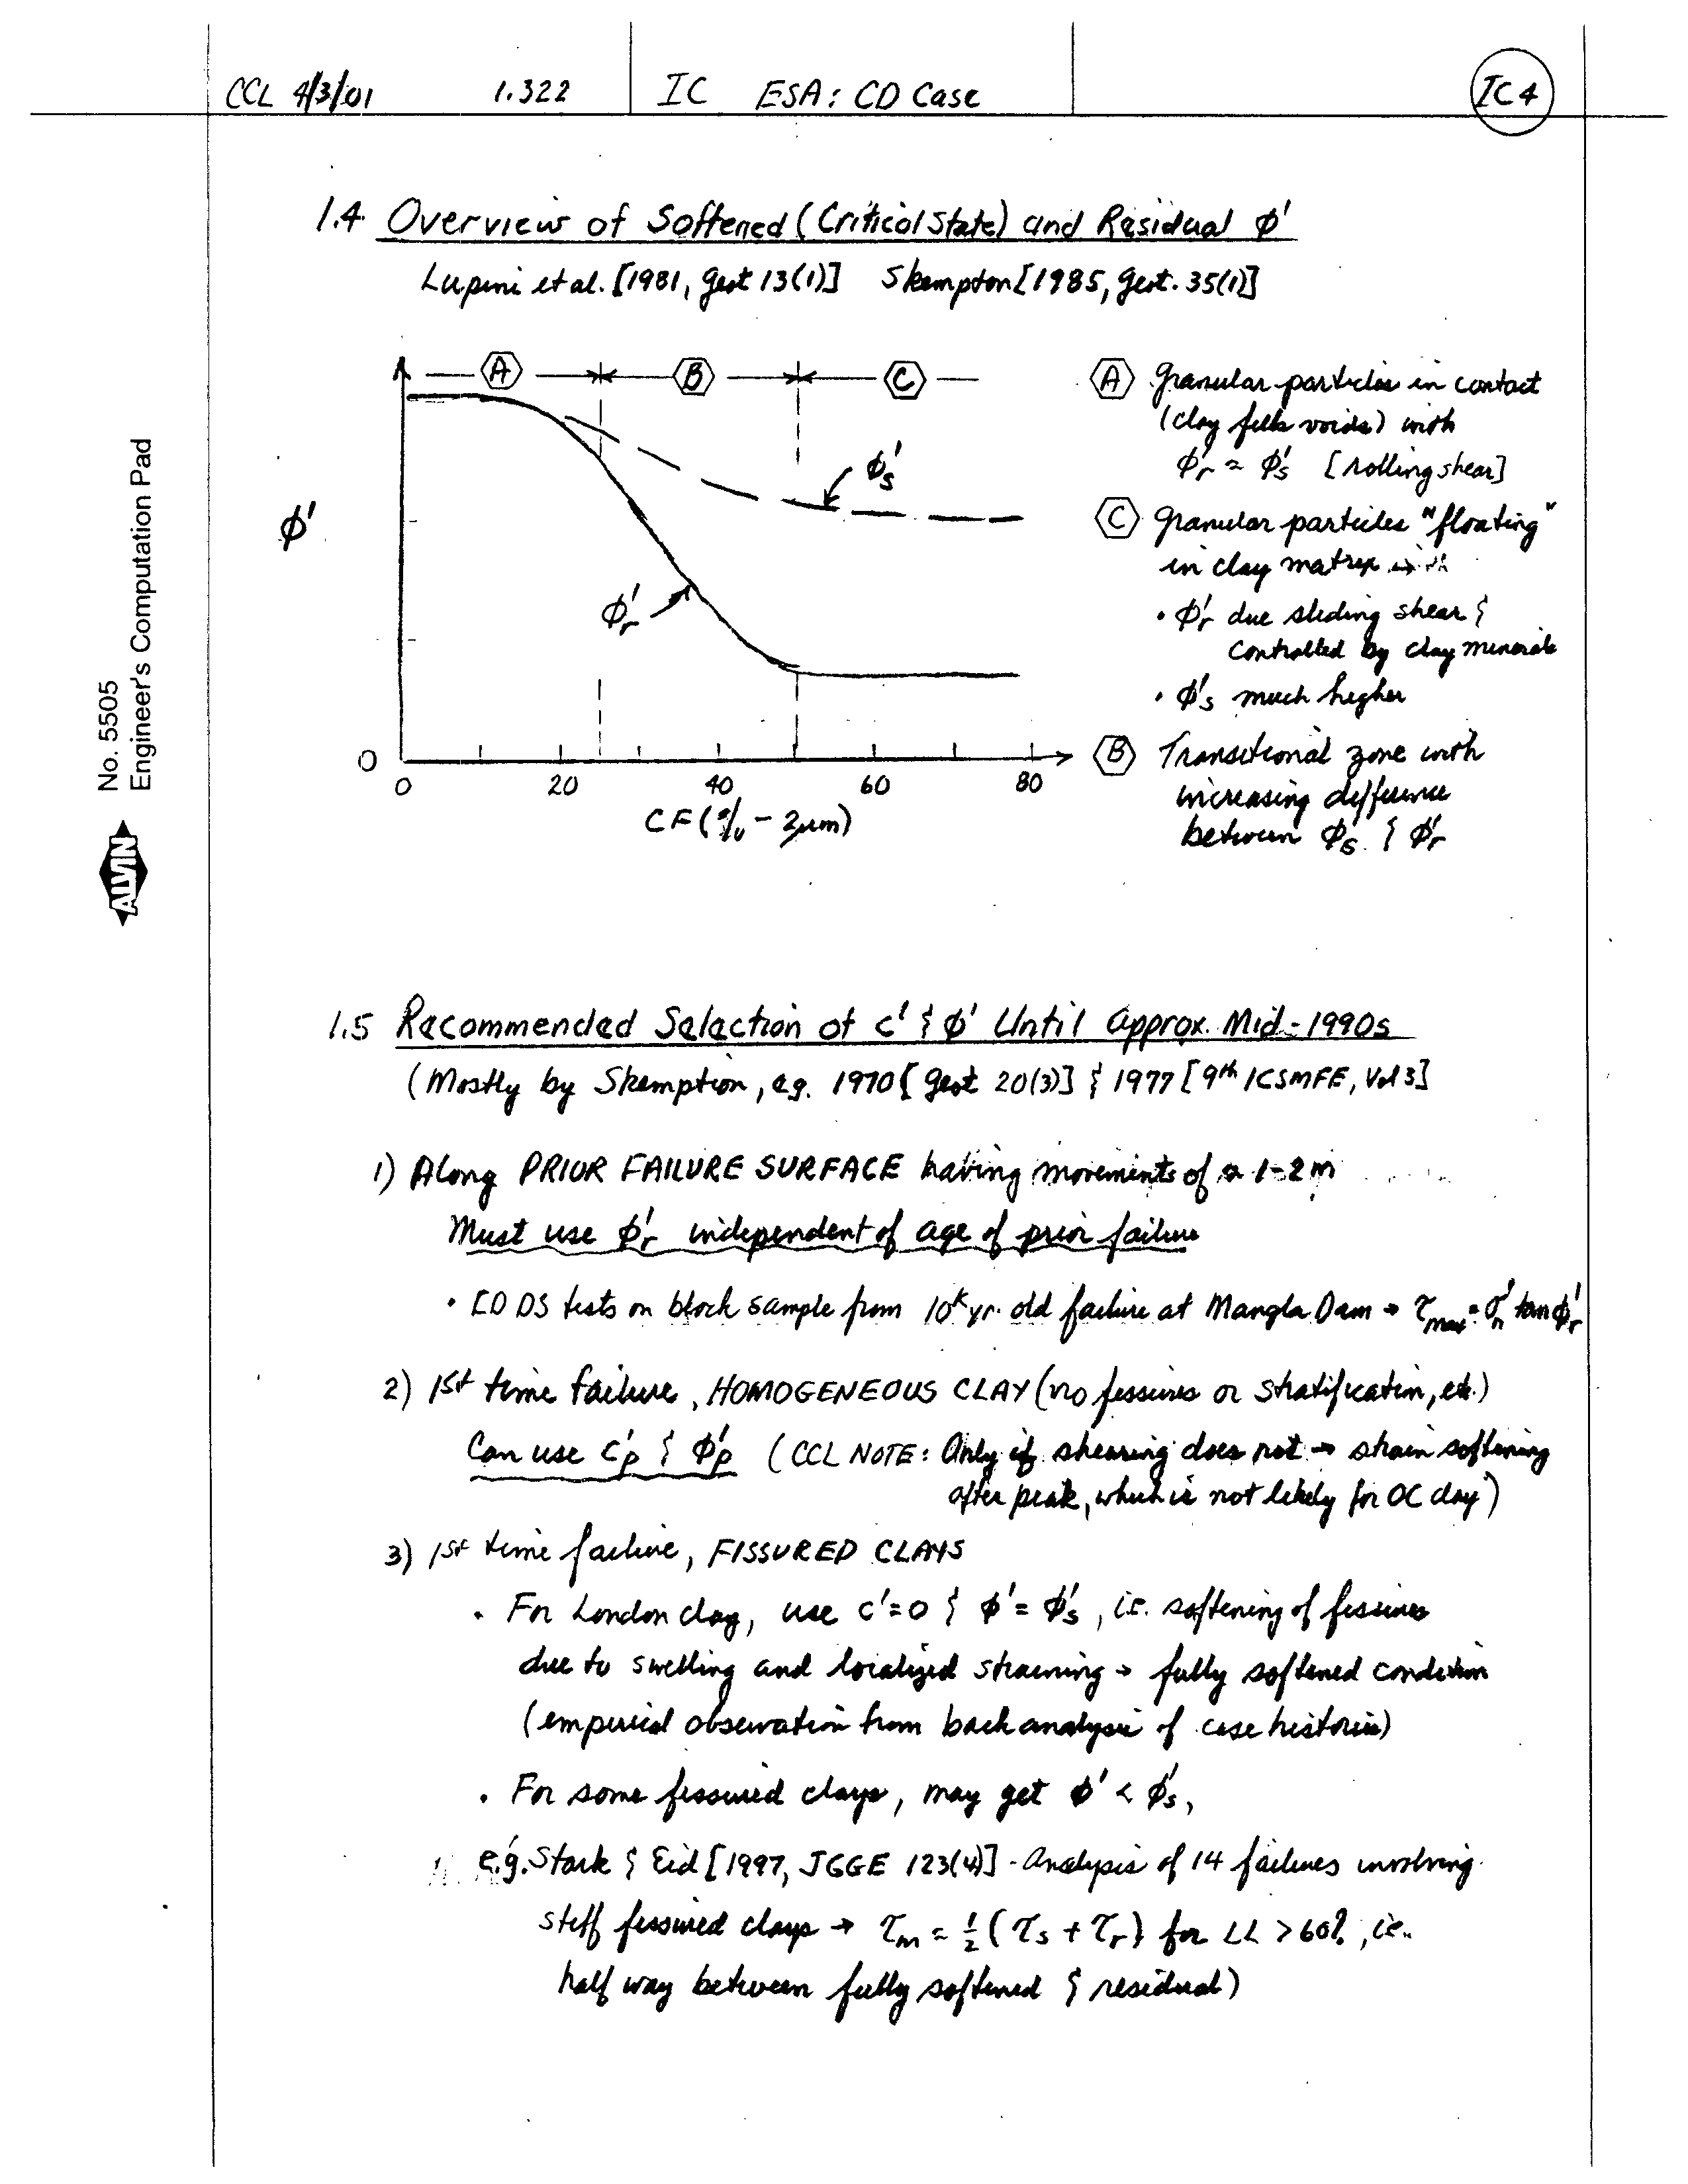 CCL 4/3/01 1.322 IC ESA: CD Case IC4
1.4 Overview of Softened (Critical State) and Residual ϕ'
Lupini et al. [1981, Geot 13(1)] Skempton [1985, Geot. 35(1)]
A B C
ϕ'
ϕ's
ϕ'r
0
0 20 40 60 80
CF (% - 2μm)
A Granular particles in contact
(clay fills voids) with
ϕ'r ≈ ϕ's [rolling shear]
C Granular particles "floating"
in clay matrix
• ϕ'r due sliding shear &
controlled by clay minerals
• ϕ's much higher
B Transitional zone with
increasing difference
between ϕ's & ϕ'r
No. 5505
Engineer's Computation Pad
ALVIN
1.5 Recommended Selection of c' & ϕ' Until Approx. Mid-1990s
(Mostly by Skemption, e.g. 1970 [Geot 20(3)] & 1977 [9th ICSMFE, Vol 3]
1) Along PRIOR FAILURE SURFACE having movements of ≈ 1-2 m
Must use ϕ'r independent of age of prior failure
• CD DS tests on block sample from 10k yr. old failure at Mangla Dam → τmax = σ'n tan ϕ'r
2) 1st time failure, HOMOGENEOUS CLAY (no fissures or stratification, etc.)
Can use c'p & ϕ'p (CCL NOTE: Only if shearing does not → strain softening
after peak, which is not likely for OC clay)
3) 1st time failure, FISSURED CLAYS
• For London clay, use c'=0 & ϕ'=ϕ's, i.e. softening of fissures
due to swelling and localized straining → fully softened condition
(empirical observation from back analysis of case histories)
• For some fissured clays, may get ϕ' < ϕ's,
e.g. Stark & Eid [1997, JGGE 123(4)] - Analysis of 14 failures involving
stiff fissured clays → τm = ½ (τs + τr) for LL > 60%, i.e.
half way between fully softened & residual)